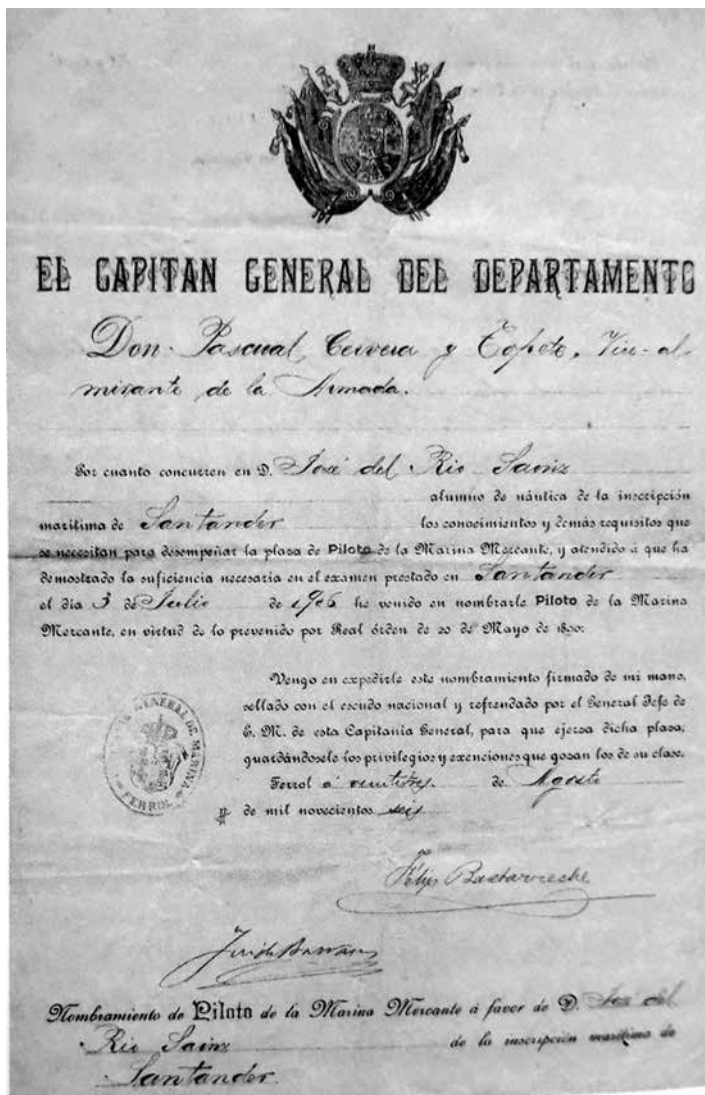 EL CAPITAN GENERAL DEL DEPARTAMENTO
Don Pascual Cervera y Topete, Vice-al-
mirante de la Armada.
Por cuanto concurren en D. José del Rio Sainz
alumno de náutica de la inscripción
marítima de Santander los conocimientos y demás requisitos que
se necesitan para desempeñar la plaza de Piloto de la Marina Mercante, y atendido á que ha
demostrado la suficiencia necesaria en el examen prestado en Santander
el día 3 de Julio de 1906 he venido en nombrarle Piloto de la Marina
Mercante, en virtud de lo prevenido por Real órden de 20 de Mayo de 1890.
Vengo en expedirle este nombramiento firmado de mi mano,
sellado con el escudo nacional y refrendado por el General Jefe de
E. M. de esta Capitanía General, para que ejersa dicha plasa;
guardándosele los privilegios y exenciones que gosan los de su clase.
Ferrol á veintitres de Agosto
de mil novecientos seis
GENERAL DE MARINA
FERROL
Félix Bastarreche
Nombramiento de Piloto de la Marina Mercante á favor de D. José del
Rio Sainz de la inscripción marítima de
Santander.